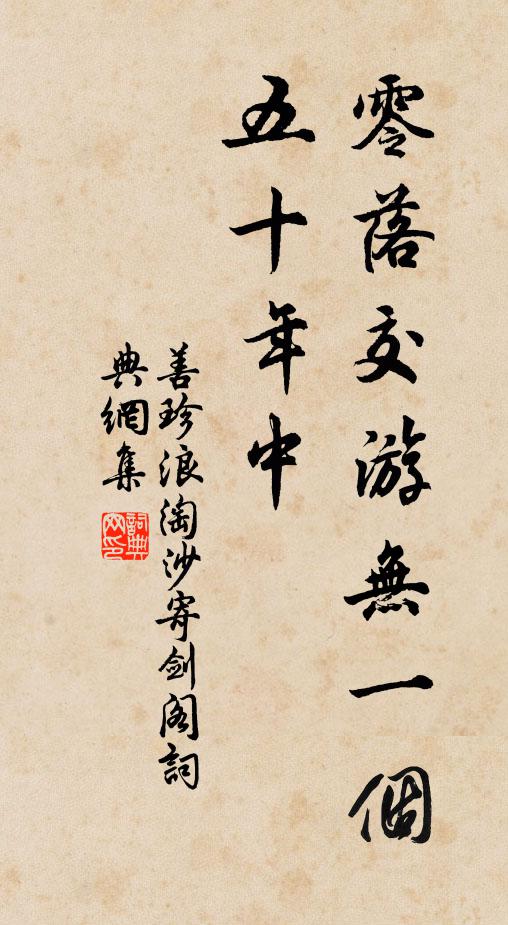 零落交游無一個
五十年中
善珍浪淘沙寄剑阁詞
典網集
詞典网印